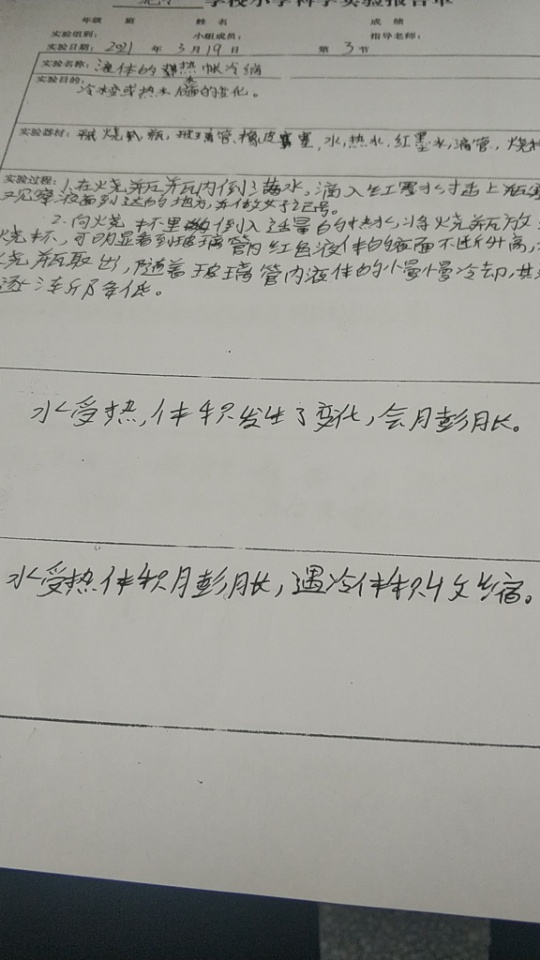 学校小学科学实验报告单
年级 班 姓名 成绩
实验组别: 小组成员: 指导老师:
实验日期: 2021 年 3 月 19 日 第 3 节
实验名称: 液体的热胀冷缩
实验目的:
冷水或热水的变化。
实验器材: 烧瓶, 玻璃管, 橡皮塞, 水, 热水, 红墨水, 滴管, 烧杯
实验过程: 1.在烧瓶内倒了水, 滴入红墨水, 塞上瓶塞
观察液面到达的地方, 并做好记号。
2.向烧杯里倒入适量的热水, 将烧瓶放
烧杯, 可明显看到玻璃管内红色液体的液面不断升高,
烧瓶取出, 随着玻璃管内液体的慢慢冷却, 其
逐渐降低。
水受热, 体积发生了变化, 会膨胀。
水受热体积膨胀, 遇冷体积收缩。